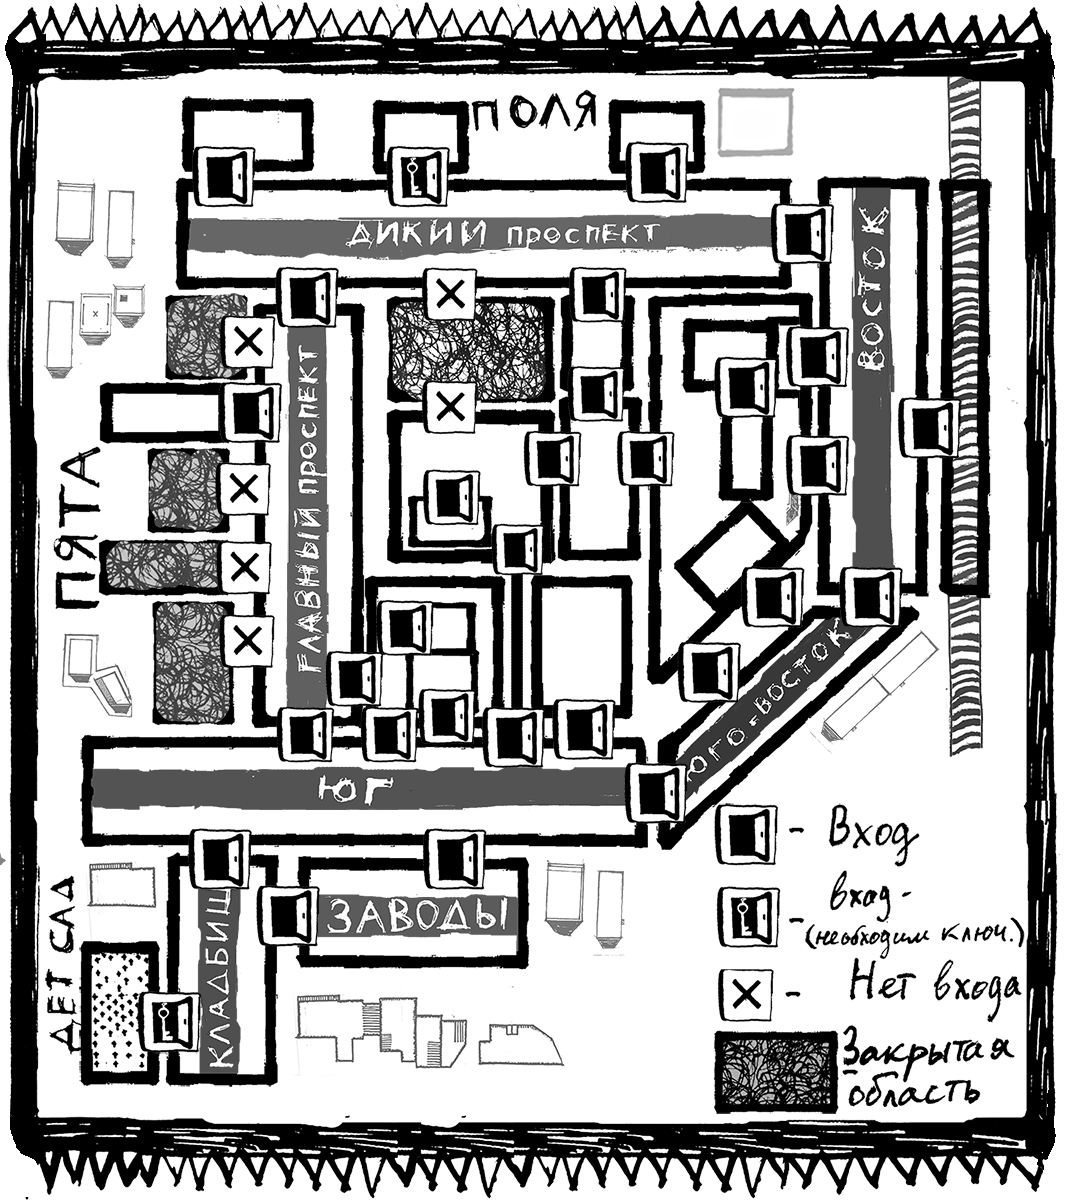 ПОЛЯ
ДИКИЙ ПРОСПЕКТ
ВОСТОК
ГЛАВНЫЙ ПРОСПЕКТ
ПЯТА
ЮГО-ВОСТОК
ЮГ
ЗАВОДЫ
КЛАДБИЩ
ДЕТ САД
- Вход
- вход -
(необходим ключ.)
- Нет входа
Закрытая
область